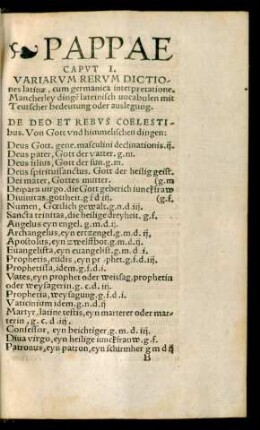 PAPPAE
CAPVT I.
VARIARVM RERVM DICTIO-
nes latinæ, cum germanica interpretatione.
Mancherley dingē lateinisch vocabulen mit
Teutscher bedeutung oder auslegung.
DE DEO ET REBVS COELESTI-
bus. Von Gott vnd himmelischen dingen:
Deus Gott. gene. masculini declinationis. ij.
Deus pater, Gott der vatter. g.m.
Deus filius, Gott der sun. g.m.
Deus spiritussanctus. Gott der heilig geist.
Dei mater, Gottes mutter. (g.m
Deipara uirgo. die Gott geberich iunckfraw
Diuinitas, gottheit. g.f d iij. (g.f.
Numen, Göttlich gewalt. g.n.d. iij.
Sancta trinitas, die heilige dreyheit. g.f.
Angelus eyn engel. g.m.d. ij.
Archangelus, eyn ertzengel. g.m.d. ij.
Apostolus, eyn zwelffbot. g.m.d. ij.
Euangelista, eyn euangelist. g.m d. i.
Propheta, etidis, eyn prophet. g.f.d. iij.
Prophetissa, idem. g.f.d. i.
Vates, eyn prophet oder weisag, prophetin
oder weysagerin. g.c.d. iij.
Prophetia, weysagung. g.f.d. i.
Vaticinium idem. g.n.d. ij
Martyr, latine testis, eyn marterer oder mar-
terin, g.c.d. iij.
Confessor, eyn beichtiger, g.m.d. iij.
Diua virgo, eyn heilige iunckfraw g.f.
Patronus, eyn patron, eyn schirmher g m d ij
B